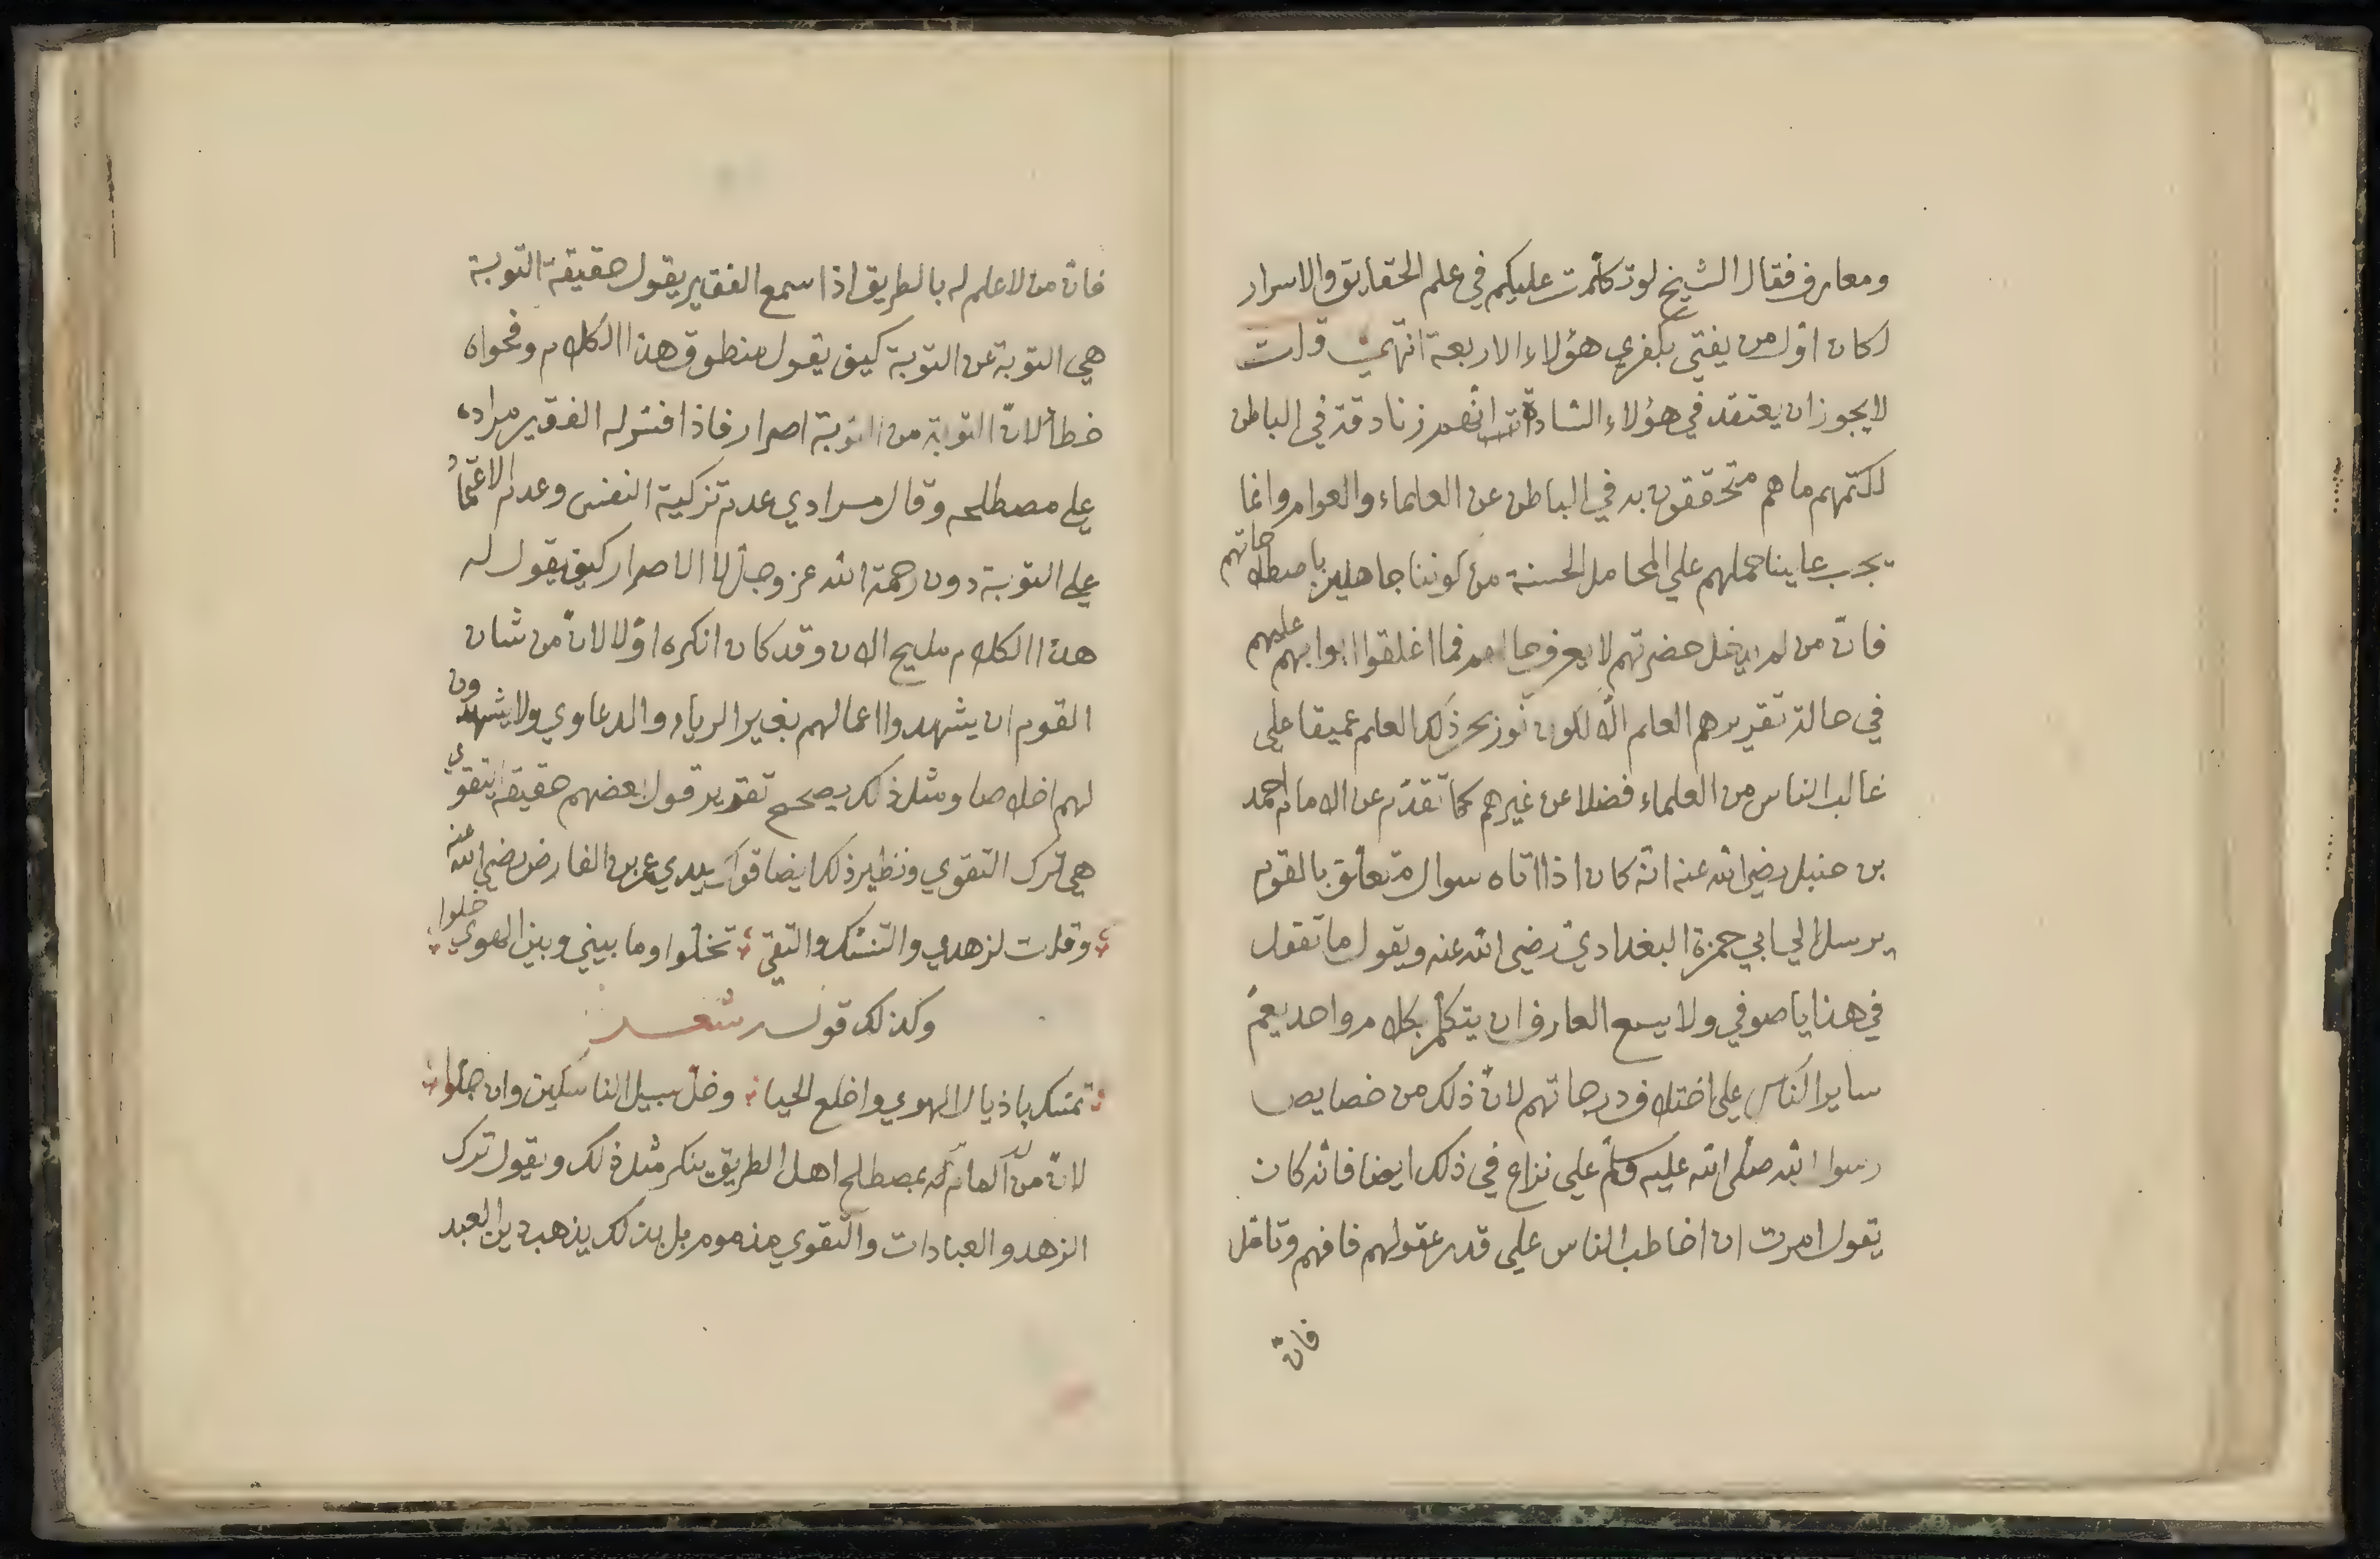 ومعارف فقال الشيخ لو تكلمت عليكم في علم الحقايق والاسرار
لكان اول من يفتي بكفري هؤلاء الاربعة انتهى قلت
لا يجوز ان يعتقد في هؤلاء السادة انهم زنادقة في الباطن
لكتمهم ما هم متحققون به في الباطن عن العلماء والعوام وانما
يجب علينا حملهم علي المحامل الحسنة من كوننا جاهلين باصطلاحاتهم
فانّ من لم يدخل حضرتهم لا يعرف حالهم فما اغلقوا ابوابهم عليهم
في حالة تقريرهم العلم الّا لكون غور بحر ذلك العلم عميقا علي
غالب الناس من العلماء فضلا عن غيرهم كما تقدّم عن الامام احمد
بن حنبل رضي الله عنه انّه كان اذا اتاه سوال متعلق بالقوم
يرسل الي ابي حمزة البغدادي رضى الله عنه ويقول ما تقول
في هذا يا صوفي ولا يسع العارف ان يتكلّم بكلام واحد يعمّ
ساير الناس علي اختلاف درجاتهم لانّ ذلك من خصايص
رسول الله صلّى الله عليه وسلّم علي نزاع في ذلك ايضا فانّه كان
يقول امرت ان اخاطب الناس علي قدر عقولهم فافهم وتامّل
فانّ
فانّ من لا علم له بالطريق اذا سمع الفقير يقول حقيقة التوبة
هي التوبة عن التوبة كيف يقول منطوق هذا الكلام وفحواه
خطأ لانّ التوبة من التوبة اصرار فاذا فسّر له الفقير مراده
علي مصطلحه وقال مرادي عدم تزكية النفس وعدم الاعتماد
علي التوبة دون رحمة الله عز وجل لا الاصرار كيف يقول له
هذا الكلام مليح الان وقد كان انكره اوّلا لانّ من شان
القوم ان يشهدوا اعمالهم بغير الرياء والدعاوي ولا يشهدون
لهم اخلاصا ومثل ذلك يصحح تقرير قول بعضهم حقيقة التقوي
هي ترك التقوي ونظير ذلك ايضا قول سيدي عمر بن الفارض رضي الله عنه
وقلت لزهدي والتنسّك والتقي تخلّوا وما بيني وبين الهوي خلوا
وكذلك قوله شعر
تمسّك باذيال الهوي واخلع الحيا وخلّ سبيل الناسكين وان جلّوا
لانّ من لا المام له بمصطلح اهل الطريق ينكر مثل ذلك ويقول ترك
الزهد والعبادات والتقوي مذموم بل بذلك يذهب دين العبد